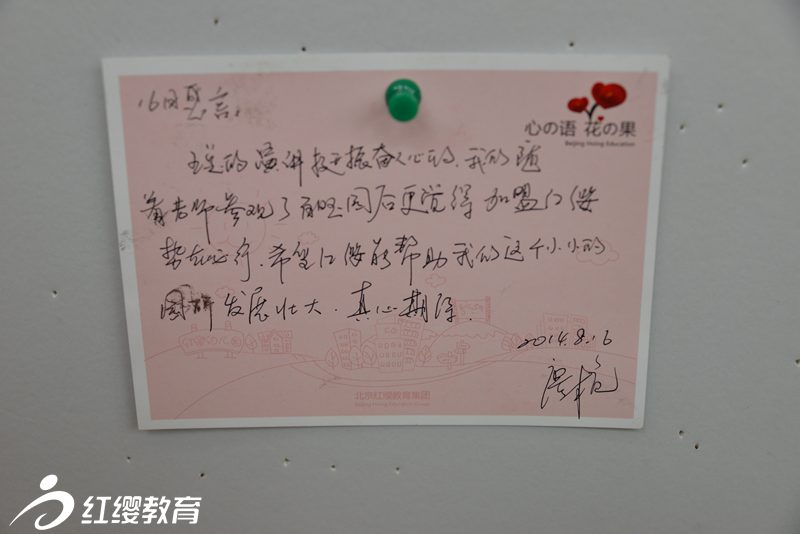 16日感言:
心の语 花の果
Beijing Hoing Education
王总的演讲技振奋人心的,我们随
着老师参观了园后更觉得加盟红缨
势在必行,希望红缨能帮助我们这个小小的
园所发展壮大.真心期待.
2014.8.16
北京红缨教育集团
Beijing Hoing Education Group
红缨教育